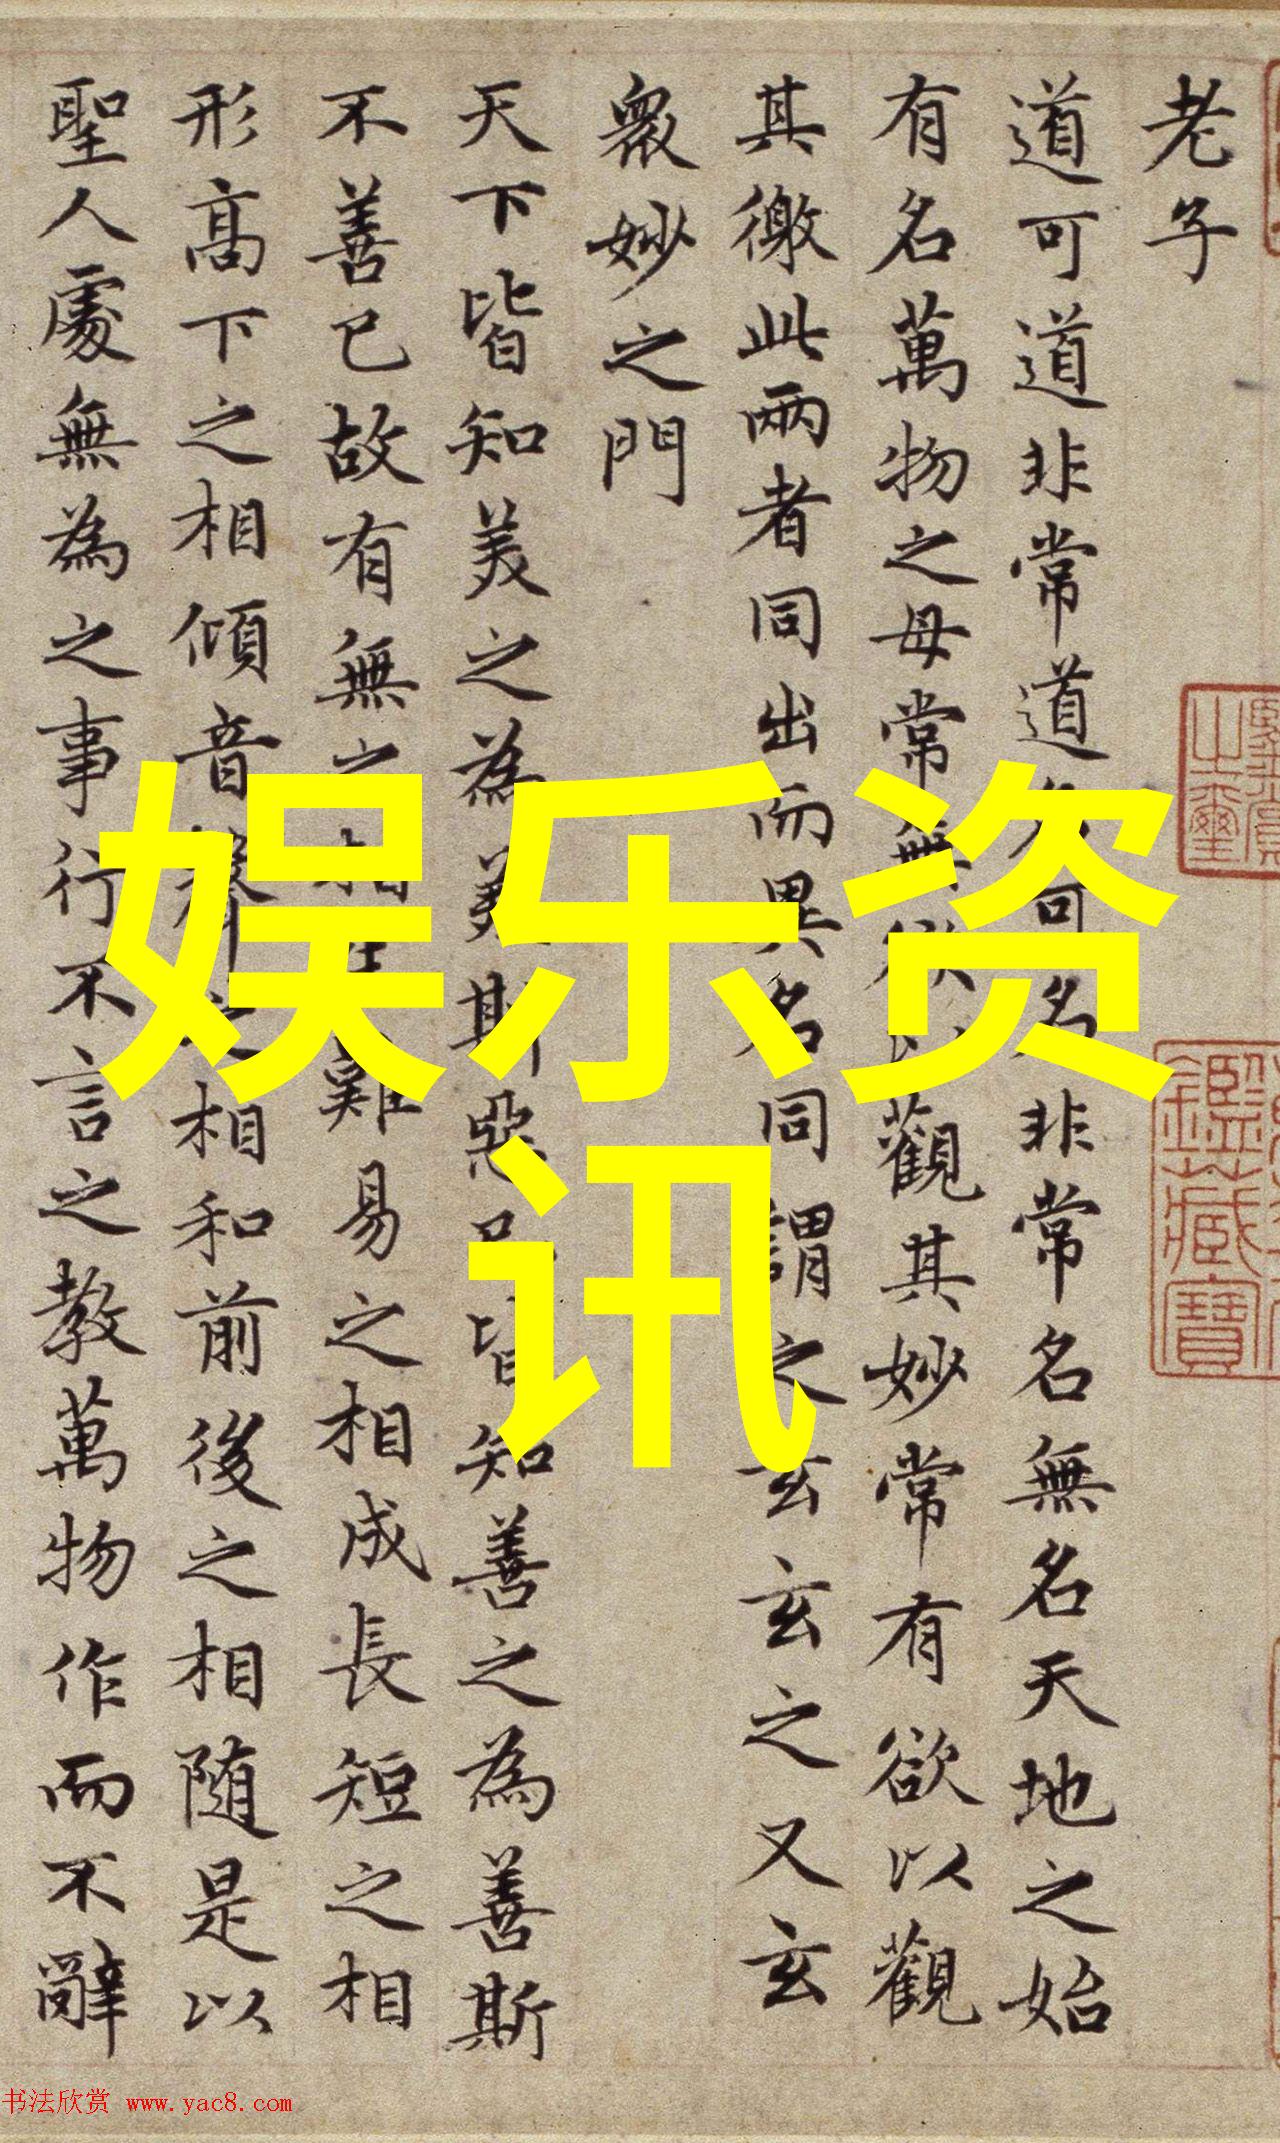 老子
道可道道非常道名可名名非常名無名天地之始
有名萬物之母常無欲以觀其妙常有欲以觀
其徼此兩者同出而異名同謂之玄玄之又玄
衆妙之門
天下皆知美之為美斯惡已皆知善之為善斯
不善已故有無之相生難易之相成長短之相
形高下之相傾音聲之相和前後之相随是以
聖人處無為之事行不言之教萬物作而不辭
娱乐资
讯
鑑藏寶
之璽
书法欣赏 www.yac8.com